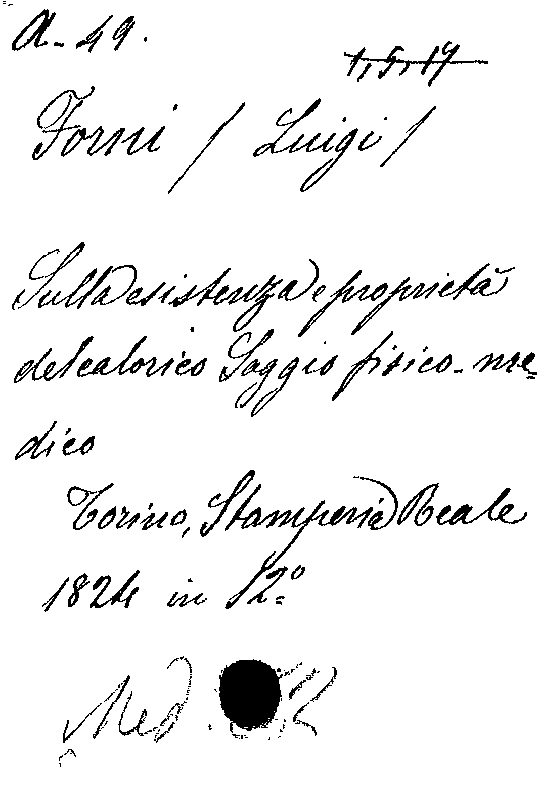 A. 49.
1, 5, 17
Forni / Luigi /
Sulla esistenza e proprietà
del calorico Saggio fisico-me=
dico
Torino, Stamperia Reale
1824 in 12°=
Med.